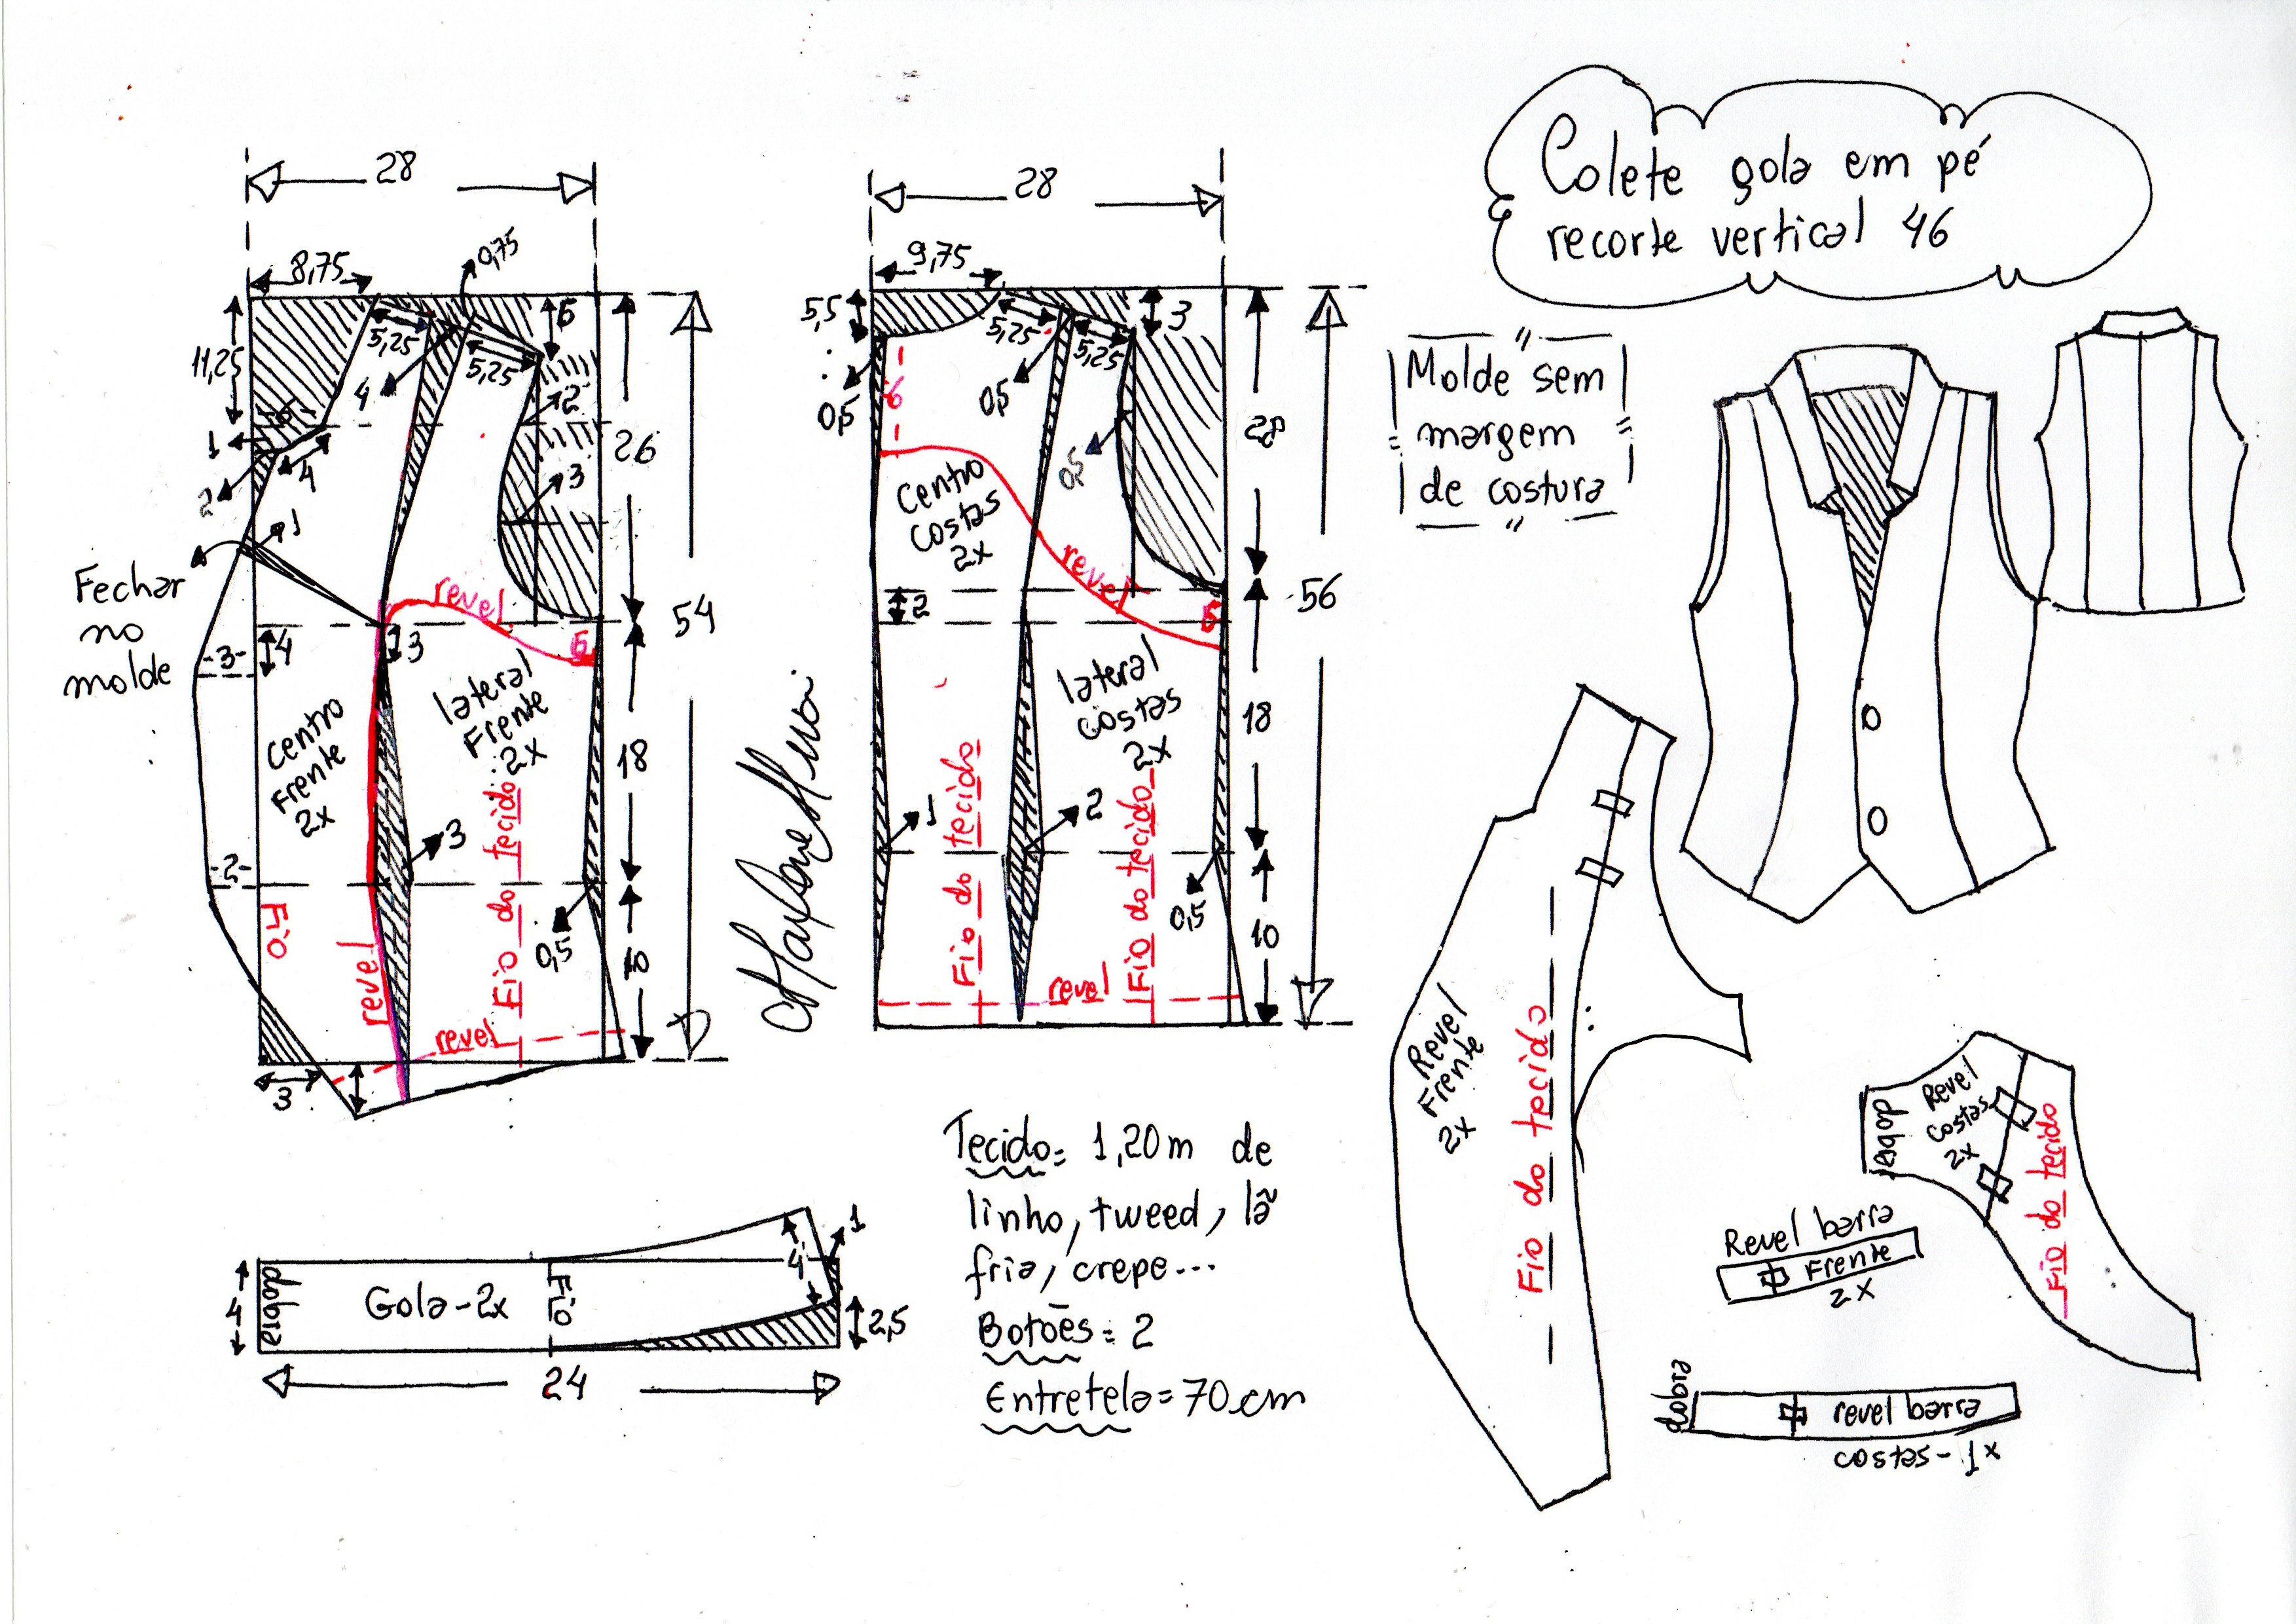 Colete gola em pé
recorte vertical 46
Molde sem
margem
de costura
28
8,75
0,75
11,25
5,25
4
5,25
5
2
26
1
4
2
3
1
Fechar
no
molde
revel
5
54
-3-
4
3
Centro
Frente
2x
lateral
Frente
2x
18
3
-2-
Fio do tecido
0,5
10
revel
revel
3
28
9,75
5,5
5,25
5,25
3
0,5
6
0,5
0,5
28
Centro
costas
2x
revel
2
5
56
lateral
costas
2x
18
1
2
Fio do tecido
Fio do tecido
0,5
10
revel
4
dobra
Gola-2x
Fio
4
1
2,5
24
Tecido= 1,20m de
linho, tweed, lã
fria, crepe...
Botões= 2
Entretela=70cm
Revel
Frente
2x
Fio do tecido
dobra
Revel
costas
2x
Fio do tecido
Revel barra
Frente
2x
dobra
revel barra
costas-1x